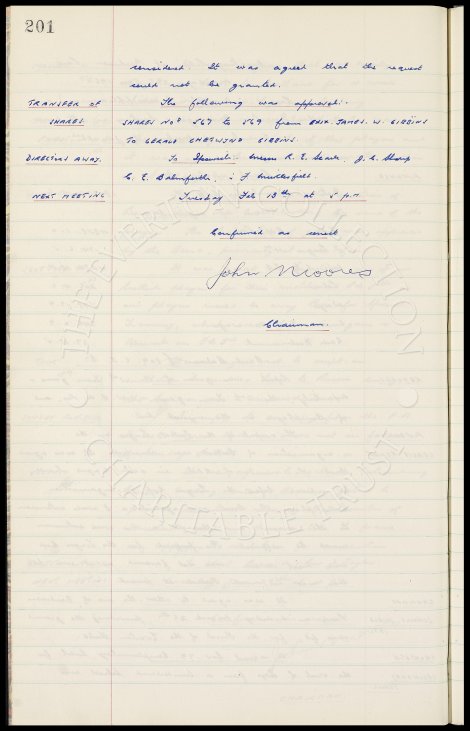 201
considered. It was agreed that the request
could not be granted.
TRANSFER OF SHARES. The following was approved:-
SHARES Nos 567 to 569 from ERIC JAMES W. GIBBINS
TO GERALD CHETWYND GIBBINS.
DIRECTORS AWAY. To Ipswich:- Messrs R. E. Searle, J. C. Sharp
C. E. Balmforth, & F. Micklesfelt.
NEXT MEETING Tuesday Feb 13th at 5 p.m.
Confirmed as correct
John Moores
Chairman.
THE EVERTON COLLECTION
CHARITABLE TRUST